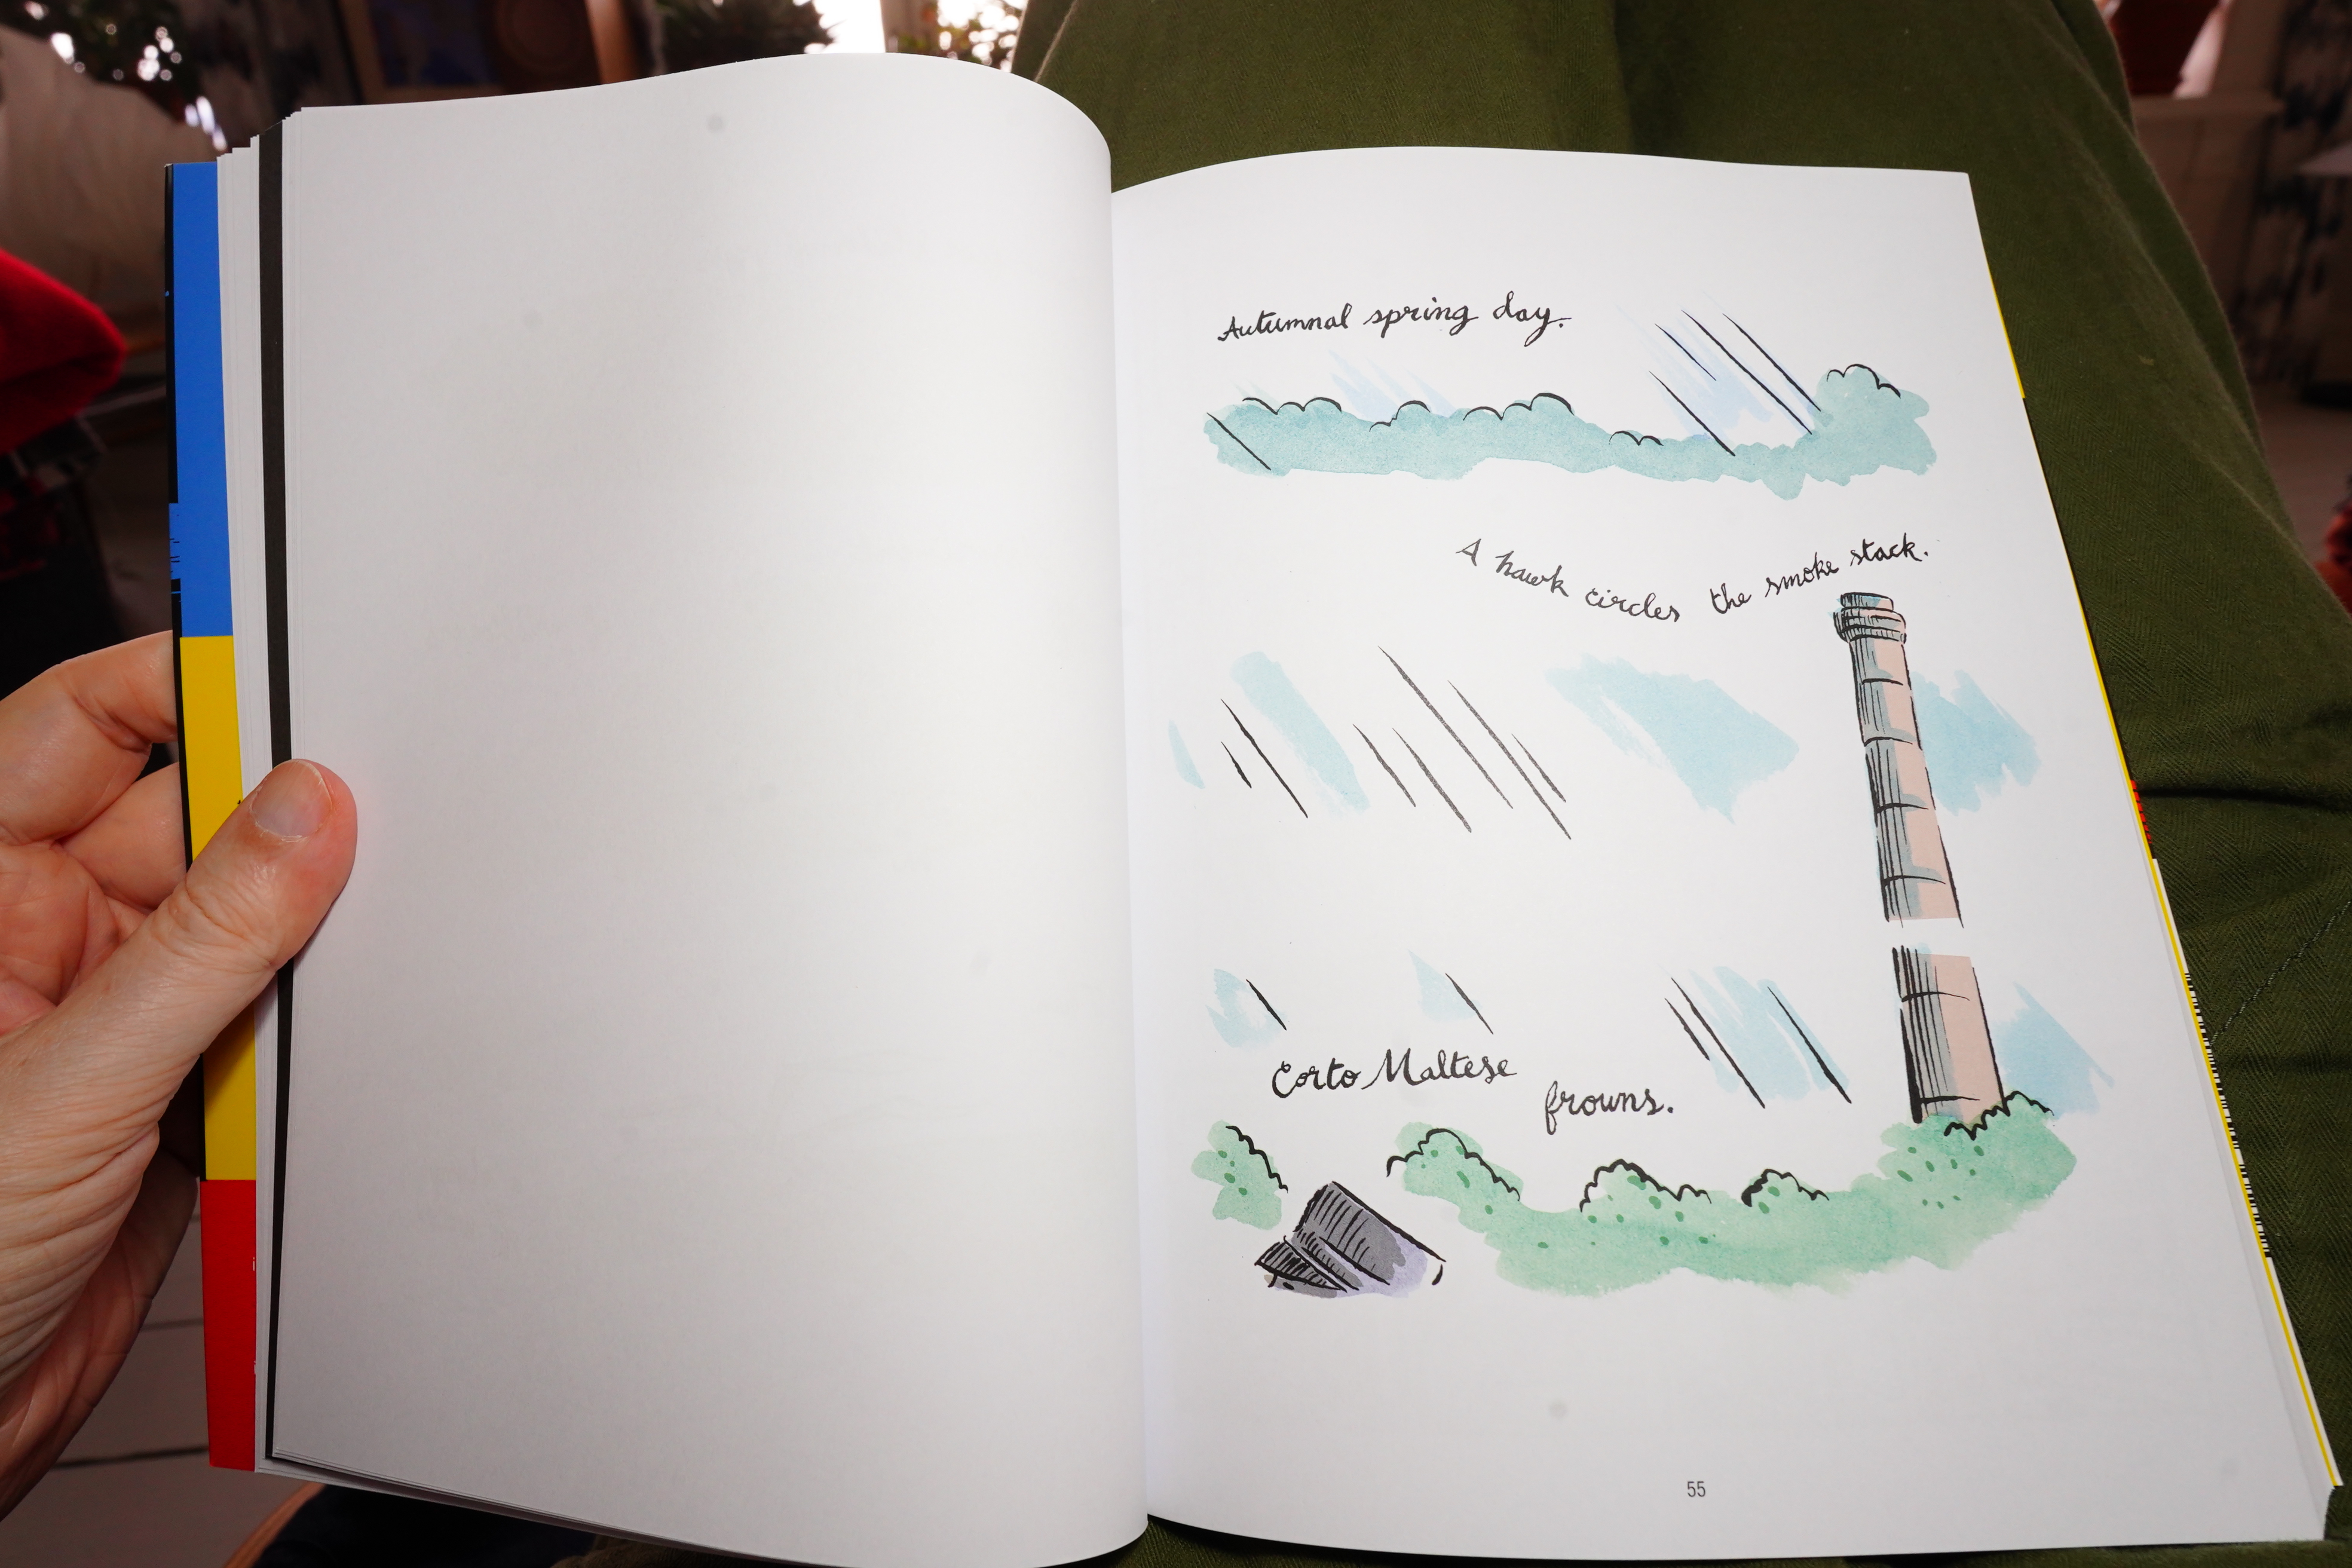 Autumnal spring day.
A hawk circles the smoke stack.
Corto Maltese
frowns.
55